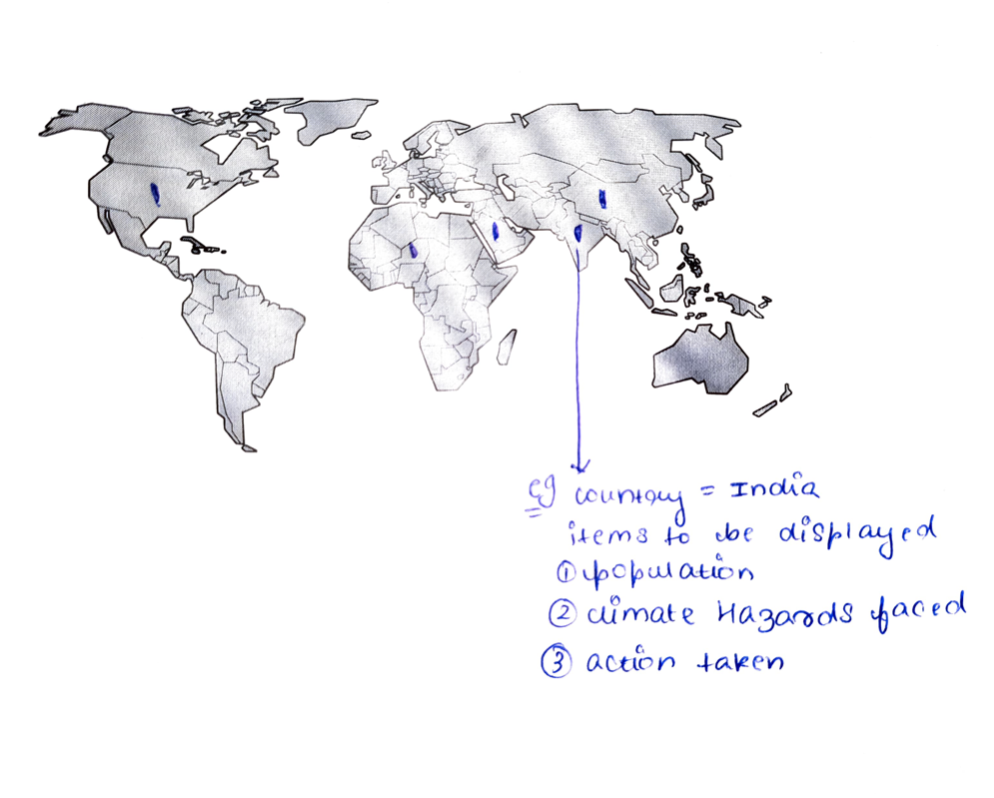 Eg country = India
items to be displayed
① population
② climate Hazards faced
③ action taken